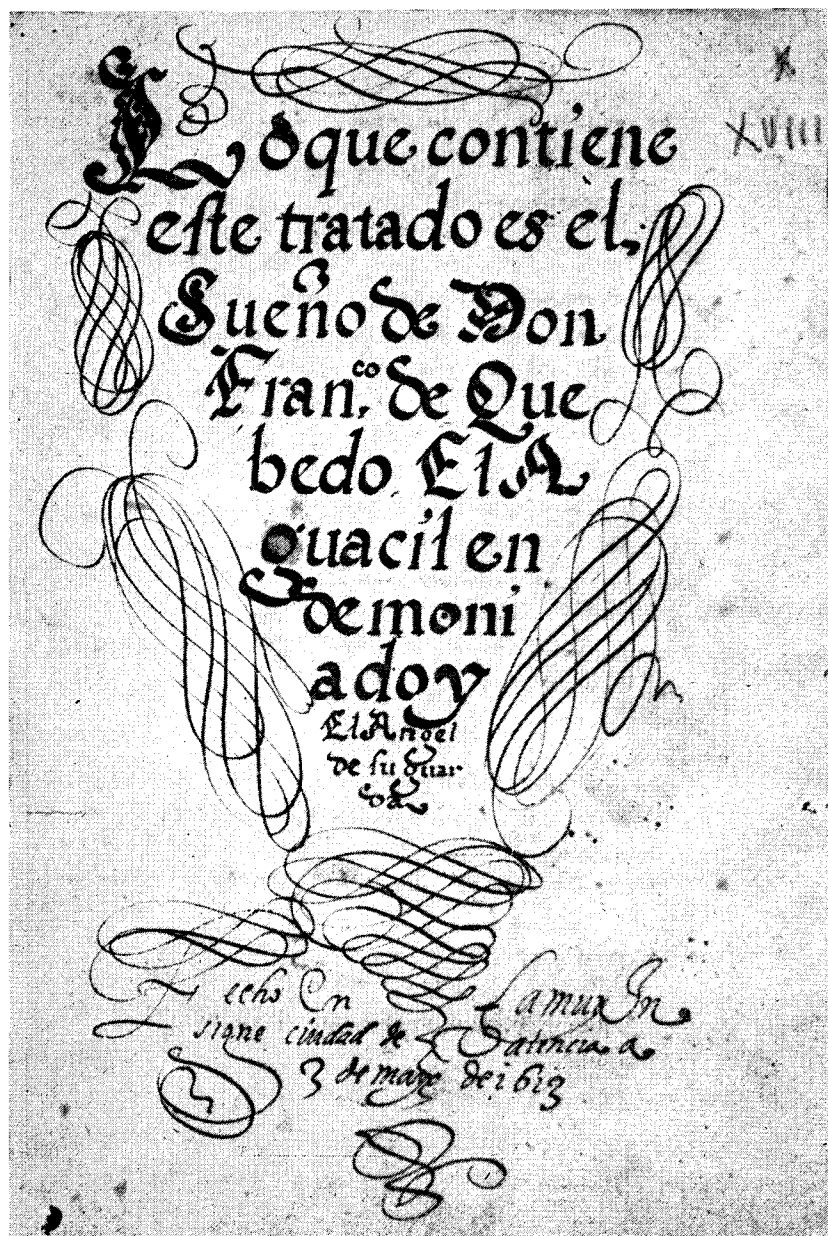 X
XVIII
Lo que contiene
este tratado es el,
Sueño de Don
Fran.co de Que
bedo. El A
guacil en
demoni
ado y
El Angel
de su guar
da
Fecho En La muy In
signe ciudad de Valencia a
3 de mayo de 1613